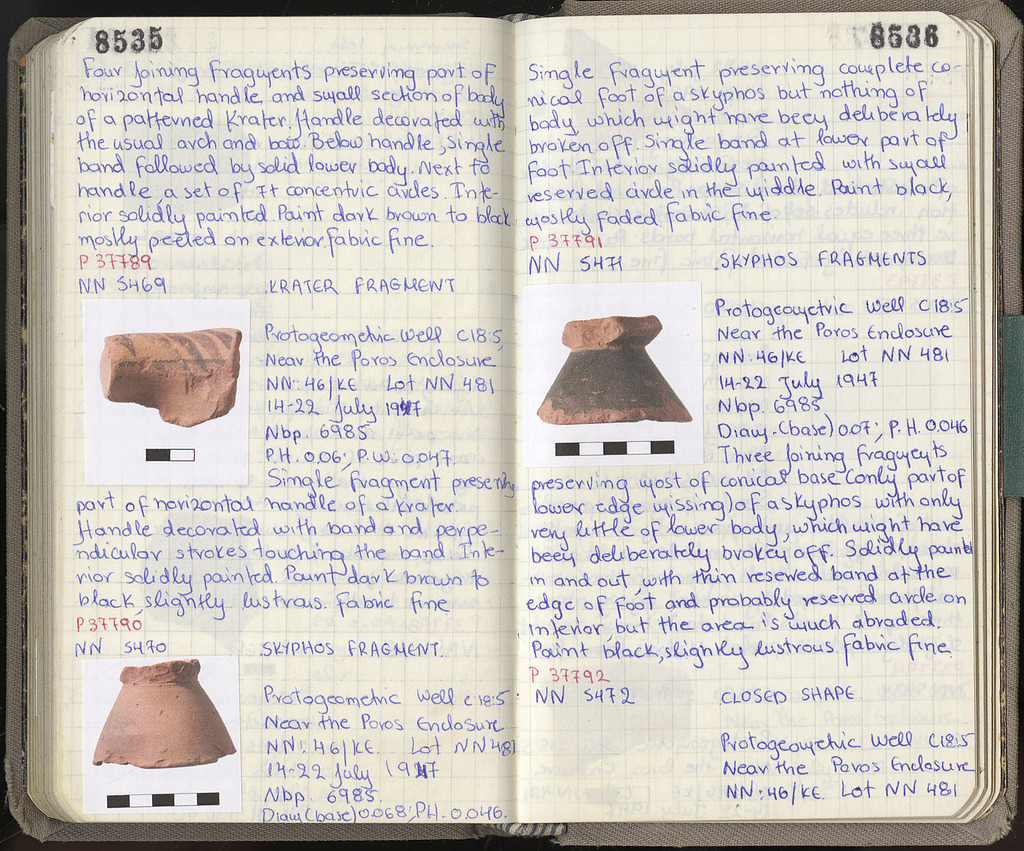 8535
Four joining fragments preserving part of
horizontal handle and small section of body
of a patterned Krater. Handle decorated with
the usual arch and bow. Below handle, single
band followed by solid lower body. Next to
handle, a set of 7+ concentric circles. Inte-
rior solidly painted. Paint dark brown to black
mostly peeled on exterior. Fabric fine.
P 37789
NN 5469 KRATER FRAGMENT
Protogeometric Well C18:5
Near the Poros Enclosure
NN: 46/KE Lot NN 481
14-22 July 1947
Nbp. 6985
P.H. 0.06; P.W. 0.047.
Single fragment preserving
part of horizontal handle of a krater.
Handle decorated with band and perpe-
ndicular strokes touching the band. Inte-
rior solidly painted. Paint dark brown to
black, slightly lustrous. Fabric fine
P 37790
NN 5470 SKYPHOS FRAGMENT.
Protogeometric Well C18:5
Near the Poros Enclosure
NN: 46/KE. Lot NN 481
14-22 July 1947
Nbp. 6985.
Diam (base) 0.068; P.H. 0.046.
8536
Single fragment preserving complete co-
nical foot of a skyphos but nothing of
body, which might have been deliberately
broken off. Single band at lower part of
foot. Interior solidly painted with small
reserved circle in the middle. Paint black,
mostly faded. Fabric fine.
P 37791
NN 5471 SKYPHOS FRAGMENTS
Protogeometric Well C18:5
Near the Poros Enclosure
NN: 46/KE Lot NN 481
14-22 July 1947
Nbp. 6985
Diam. (base) 0.07; P.H. 0.046
Three joining fragments
preserving most of conical base (only part of
lower edge missing) of a skyphos with only
very little of lower body, which might have
been deliberately broken off. Solidly painted
in and out, with thin reserved band at the
edge of foot and probably reserved circle on
interior, but the area is much abraded.
Paint black, slightly lustrous. Fabric fine.
P 37792
NN 5472 CLOSED SHAPE
Protogeometric Well C18:5
Near the Poros Enclosure
NN: 46/KE. Lot NN 481